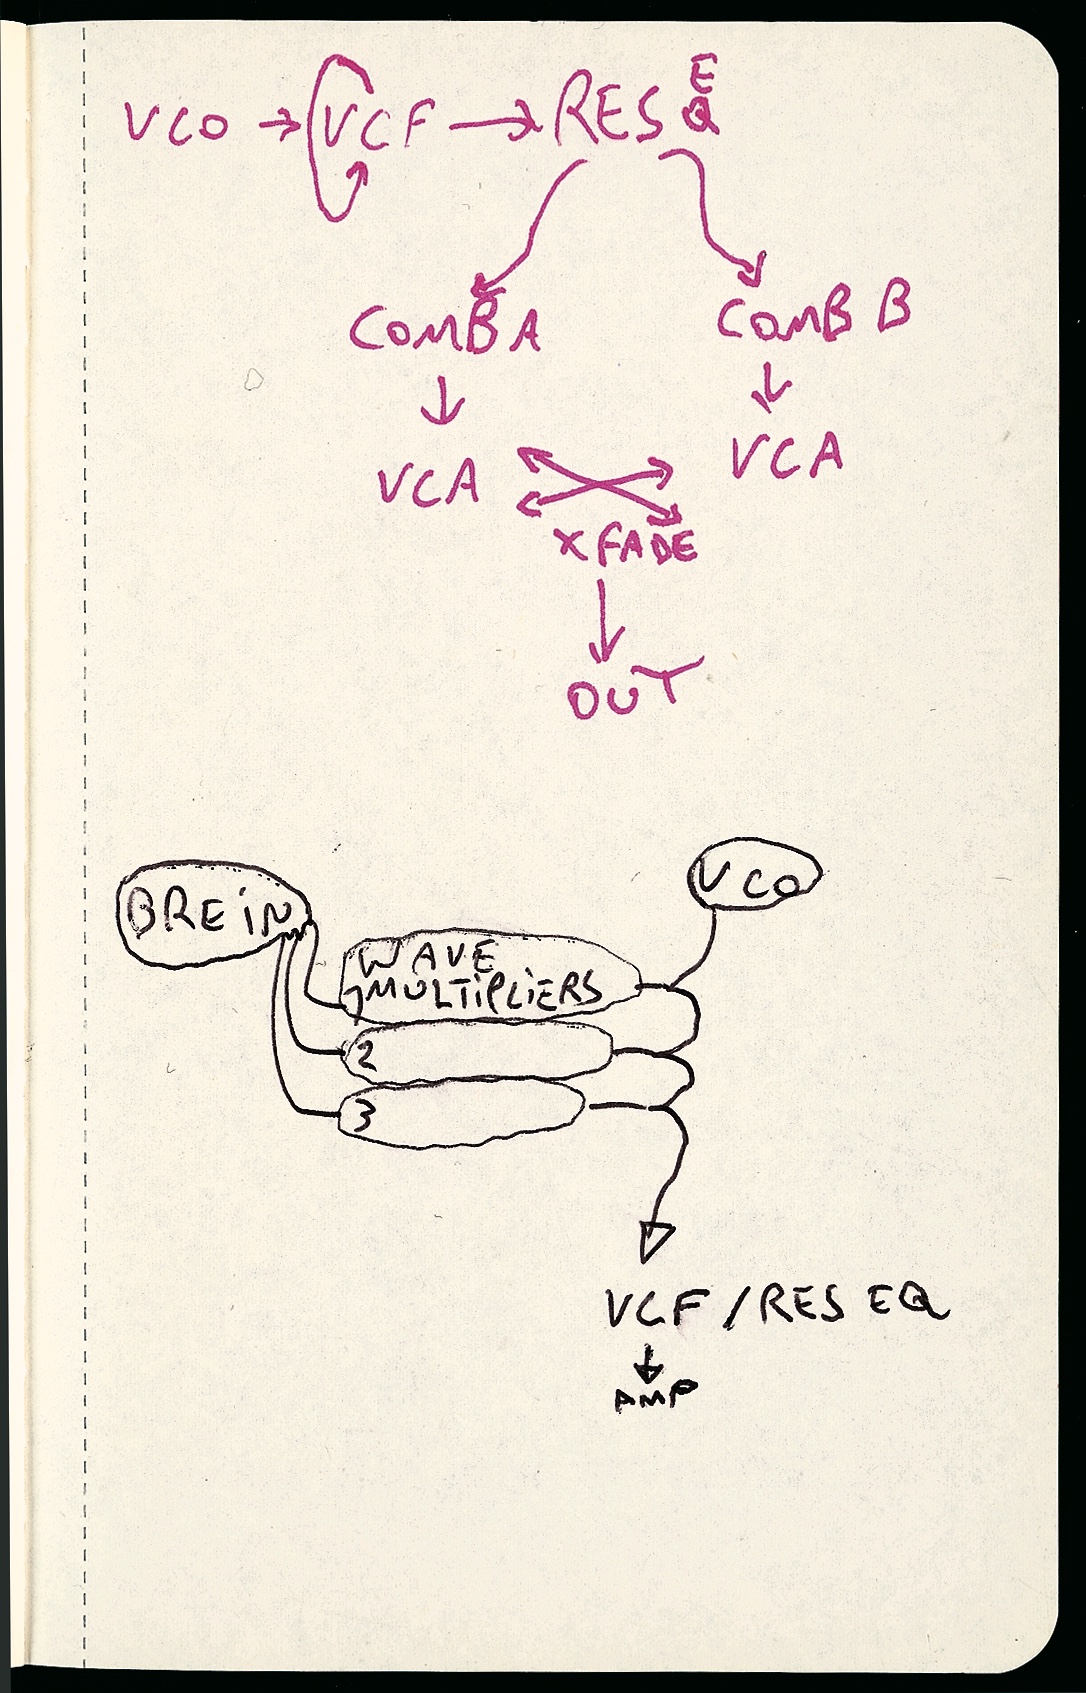 VCO → VCF → RES EQ
COMB A COMB B
↓ ↓
VCA VCA
XFADE
↓
OUT
VCO
BREIN
WAVE
1 MULTIPLIERS
2
3
VCF / RES EQ
↓
AMP